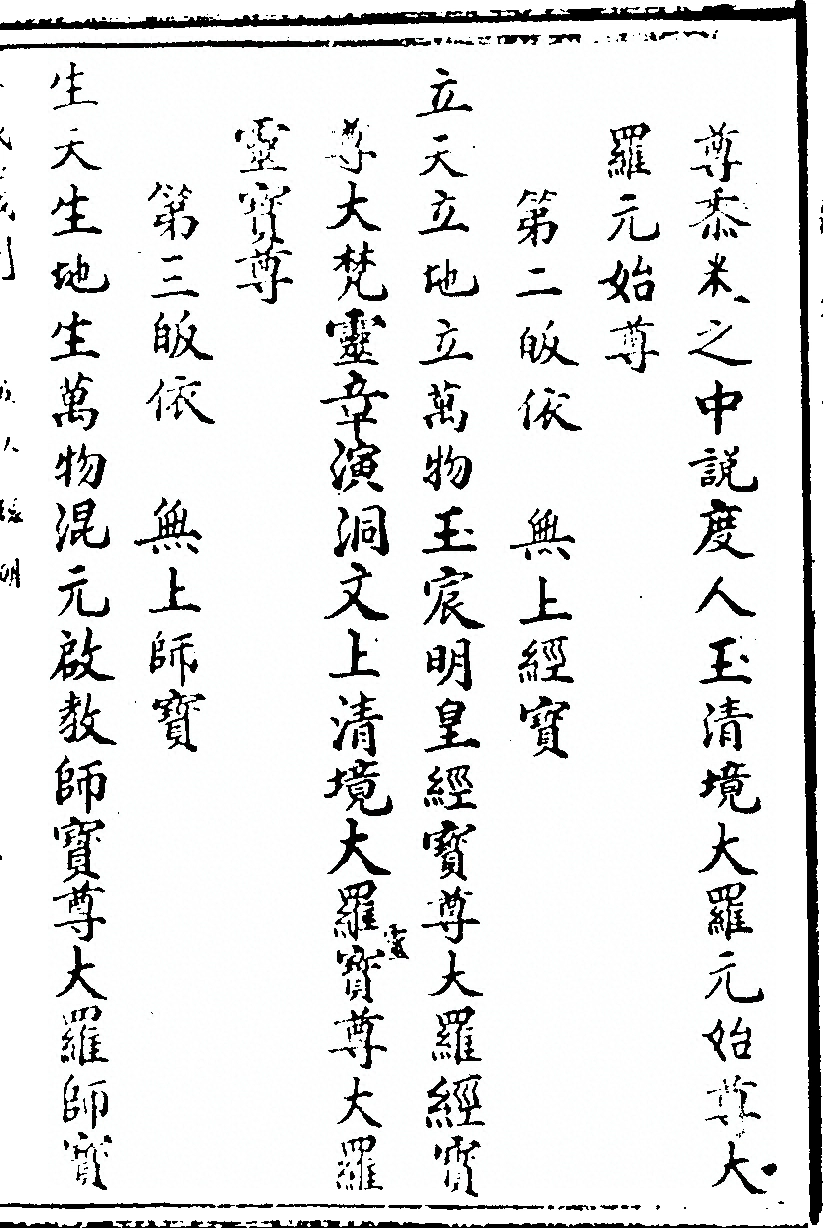 尊黍米之中説度人玉清境大羅元始尊大
羅元始尊
第二皈依 無上經寶
立天立地立萬物玉宸明皇經寶尊大羅經寶
尊大梵靈章演洞文上清境大羅靈寶尊大羅
靈寶尊
第三皈依 無上師寶
生天生地生萬物混元啟教師寶尊大羅師寶